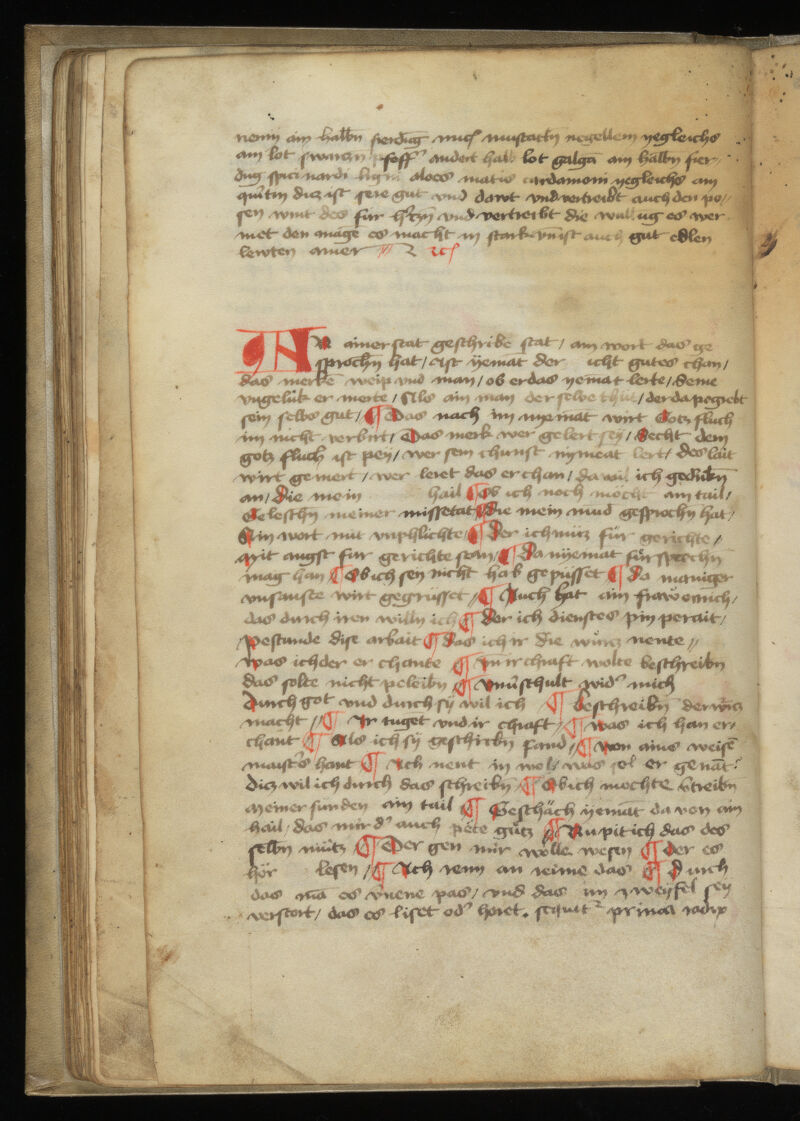 nenn ain halbn fierdung musc muscatn negellein yegleichs
am lot swarczn pfeffer andert halb lot galga ain halbn fier-
dug spicinardi ligni aloes matis cardamomi yegleichs ain
quitin dicz ist sere gut vnd dawt vnd vertreibt auch den po-
sen wint des fur hercz vnd vertreibt die wullug es wer
met den mage es macht in starkch ist auch gut edlen
lewten amer
An ainer stat geschribe stat / ain wort das ge
sprochn hat / Ist yemat der icht gutes chan /
das merke weip vnd man / ob er das yemat lerte / Seine
vngeluk er merte / Als ain man der selbe thut / der da pegrebt
sein selbs gut / ¶ Das nach im nyemat wirt Gotz fluch
im nicht verbirt / Das merk wer gelert sey / Secht dem
gotz fluch ist pey / wer sein chunst nymeat lert / des lait
wirt gemert / wer leret das er chan / da wil ich gedinkn
an / Die mein hail ¶ Ob ich noch mocht ain tail /
Geleschn meiner missetat ¶ Die mein mud gesprochn hat /
Ain wort mit vnphlichte / ¶ Der ich müz für gerichte /
Mit angst fur gerichte stan / ¶ Da nyemat für sprechn
mag han ¶ Ob ich sey nicht hab gepüsset ¶ Da maniger
vnsanfte wirt gegrüsset / ¶ Auch bat ain fraw mich /
das durch iren willn ich ¶ Der ich dienstes pin perait /
Pestunde dise arbait ¶ das ich ir die würcz nente //
Was ich der er chante ¶ Vn ir chraft wolte beschreibn
das solte nicht peleibn ¶ Vmüschult wid' mich
Durch got vnd durch sy wil ich ¶ Beschreibn der wücz
macht // ¶ Ir tuget vnd ir chraft / ¶ Was ich han er-
chant ¶ Als ich sy geschribn fand / ¶ Von ains weise
maist's hant ¶ Ich nent in wol / was sol er genat?
Dicz wil ich durch das schreibn / ¶ Ob ich mochte v'treibn
Meiner sunden ain tail ¶ Geschäch yemat da von ain
hail / das mir d' auch pete gütz ¶ Nu pit ich das des
selbn mütz ¶ Der gen mir wolle wesen ¶ Der es
hör lesen / ¶ Ich renn an reime das ¶ Durch
das ma es v'nene pas / vnd das im zweyfel sey
verstort / das es liset od' horet. sequit' prima radix